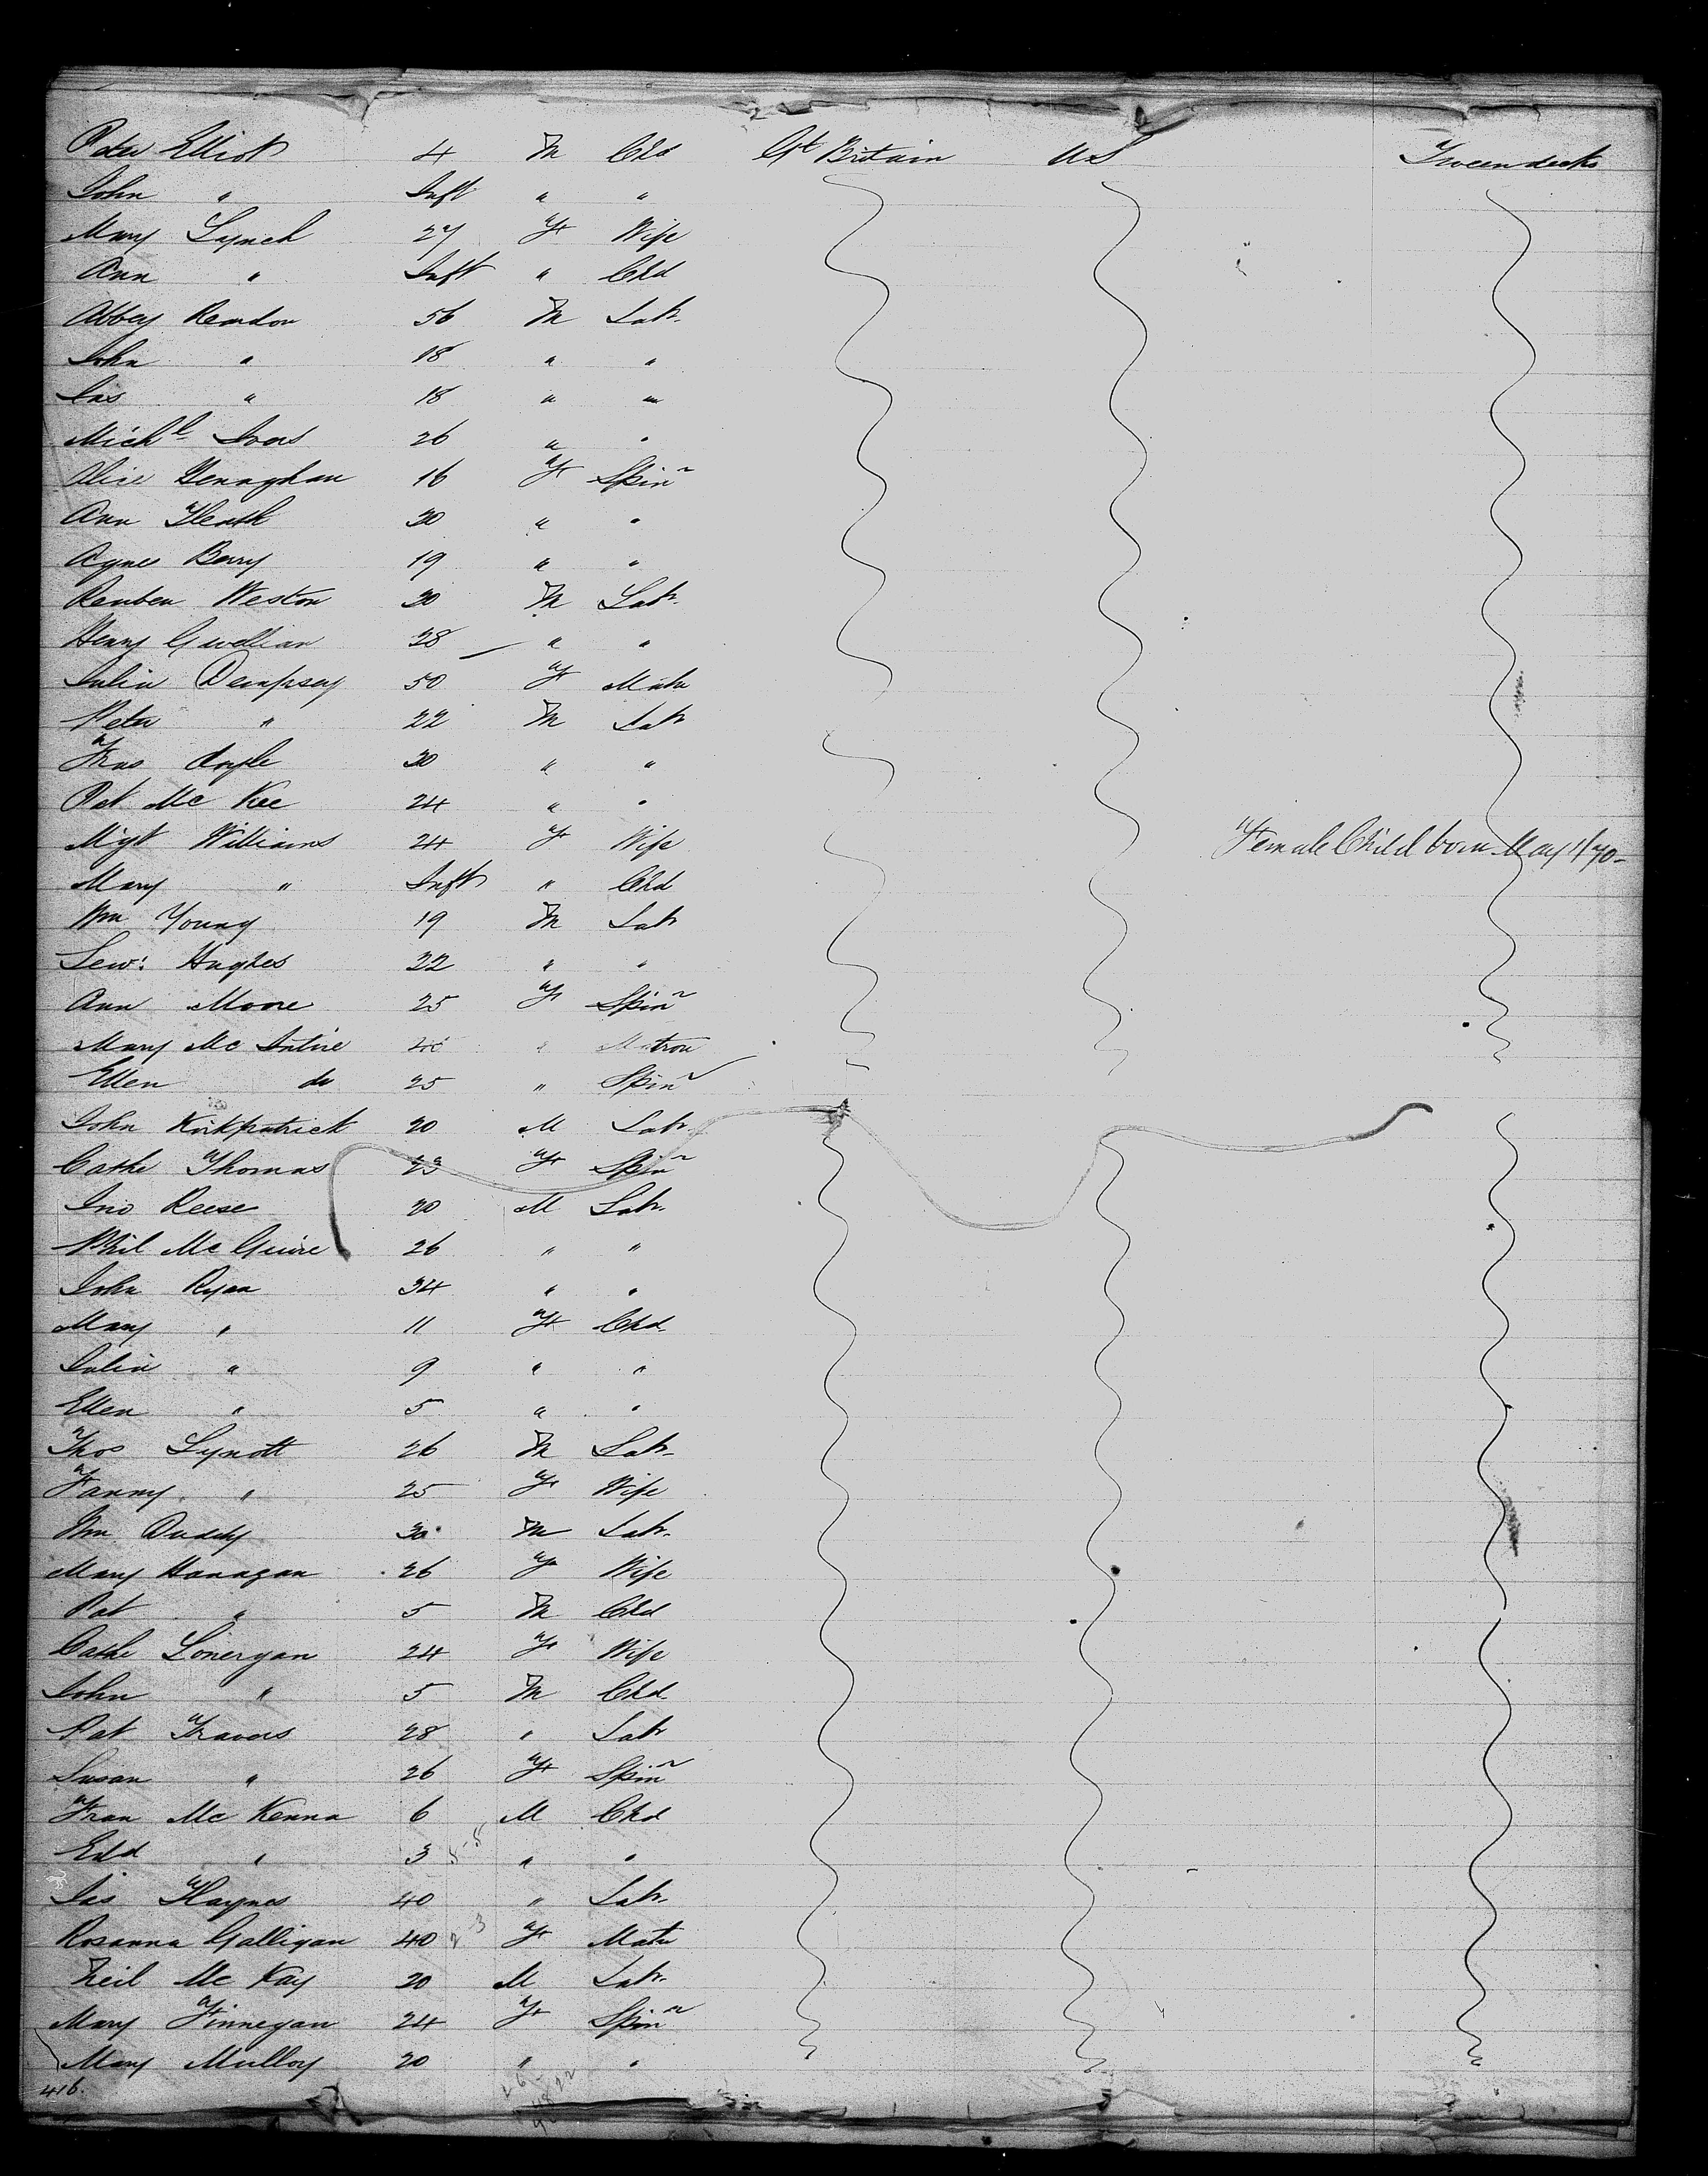 Peter Elliot 4 M Chd Gt Britain US Tweendecks
John " Inft " "
Mary Lynch 27 F Wife
Ann " Inft " Chd
Abbey Reardon 56 M Labr
John " 18 " "
Jas " 18 " "
Michl Ivers 26 " "
Alice 16 F Spinr
Ann Heath 20 " "
Agnes Berry 19 " "
Reuben Weston 20 M Labr
Henry 28 " "
Julia Dempsey 50 F Matn
Peter " 22 M Labr
Fras doyle 20 " "
Pat Mc Kee 24 " "
Mgt Williams 24 F Wife Female Child born May 1/70
Mary " Inft " Chd
Wm Young 19 M Labr
Lews Hughes 22 " "
Ann Moore 25 F Spinr
Mary Mc Intire " Matron
Ellen do 25 " Spinr
John Kirkpatrick 20 M Labr
Cathe Thomas 23 F Spinr
Jno Reese 20 M Labr
Phil Mc Guire 26 " "
John Ryan 34 " "
Mary " 11 F Chd
Julia " 9 " "
Ellen " 5 " "
Thos Lynott 26 M Labr
Fanny " 25 F Wife
Wm Duddy 30 M Labr
Mary Hanagan 26 F Wife
Pat " 5 M Chd
Cathe Lonergan 24 F Wife
John " 5 M Chd
Pat Travers 28 " Labr
Susan " 26 F Spinr
Fran Mc Kenna 6 M Chd
Edd " 3 " "
Jas Haynes 40 " Labr
Rosanna Galligan 40 F Matn
Neil Mc Kay 20 M Labr
Mary Finnegan 24 F Spinr
Mary Mulloy 20 " "
416.